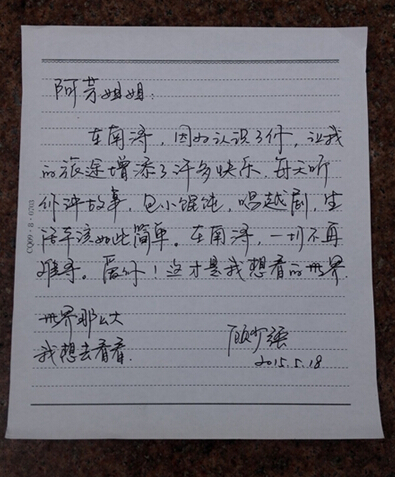 阿芳姐姐:
在南浔,因为认识了你,让我
的旅途增添了许多快乐。每天听
你讲故事,包小馄饨,唱越剧,生
活本该如此简单。在南浔,一切不再
难寻。爱你!这才是我想看的世界.
世界那么大
我想去看看.
顾少强
2015.5.18
CQ09·8·0703